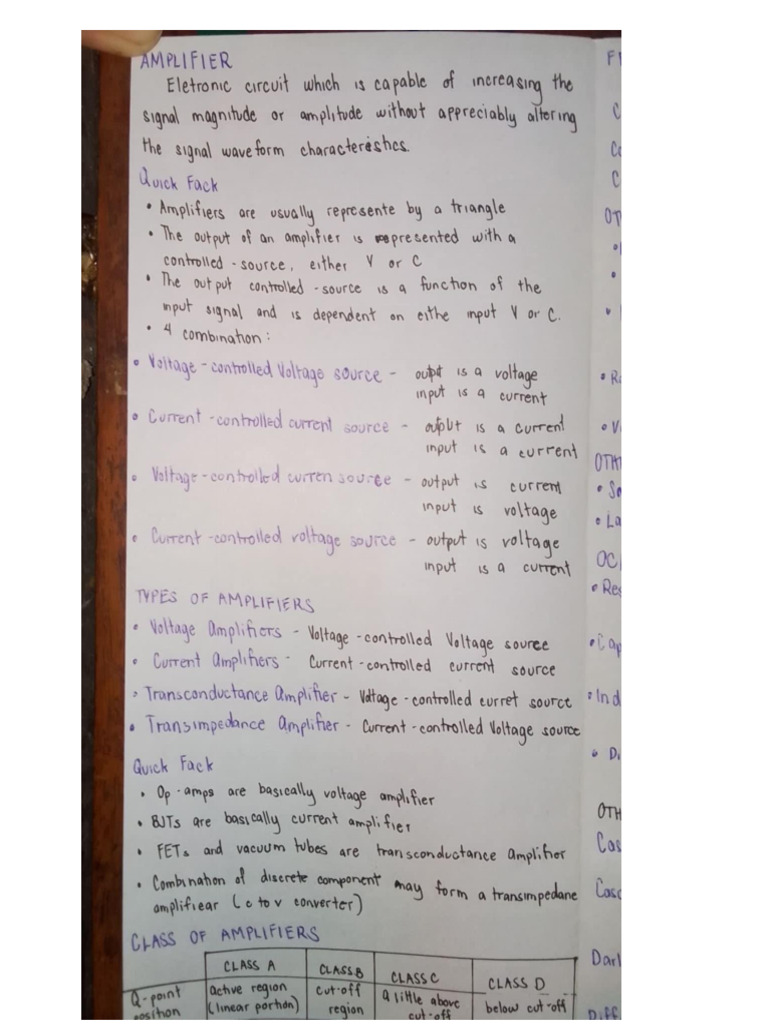 AMPLIFIER
Eletronic circuit which is capable of increasing the
signal magnitude or amplitude without appreciably altering
the signal waveform characteristics.
Quick Fack
• Amplifiers are usually represente by a triangle
• The output of an amplifier is represented with a
controlled-source, either V or C
• The output controlled-source is a function of the
input signal and is dependent on eithe input V or C.
• 4 combination:
• Voltage-controlled Voltage source - output is a voltage
input is a current
• Current-controlled current source - output is a current
input is a current
• Voltage-controlled curren source - output is current
input is voltage
• Current-controlled voltage source - output is voltage
input is a current
TYPES OF AMPLIFIERS
• Voltage Amplifiers - Voltage-controlled Voltage source
• Current Amplifiers - Current-controlled current source
• Transconductance Amplifier - Voltage-controlled curret source
• Transimpedance Amplifier - Current-controlled Voltage source
Quick Fack
• Op-amps are basically voltage amplifier
• BJTs are basically current amplifier
• FETs and vacuum tubes are transconductance amplifier
• Combination of discrete component may form a transimpedane
amplifiear (c to v converter)
CLASS OF AMPLIFIERS
CLASS A CLASS B CLASS C CLASS D
Q-point active region cut-off a little above below cut-off
position (linear portion) region cut-off
F
C
Co
C
OT
• R
• V
OTH
• Sm
• La
OC
• Res
• Cap
• Ind
• Di
OTH
Cas
Casc
Darl
Diff